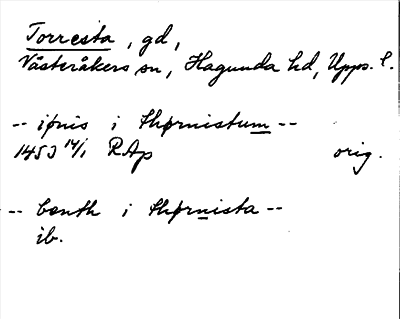 Torresta, gd,
Västeråkers sn, Hagunda hd, Upps. l.
-- ipnis i thørnistum --
1453 14/1 RAp orig.
-- bænth i thørnista --
ib.